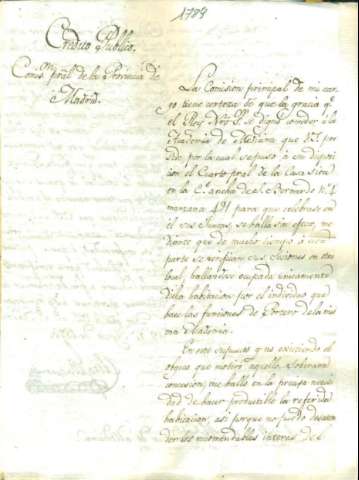 1789
Credito Publico.
Comis.n pral de la Provincia de
Madrid.
La Comision principal de mi car-
go, tiene certeza de que la gracia q.e
el Rey Ntro S.r se digno conceder á la
Academia de Medicina que V.I. pre-
side, por la cual se puso á su disposi
cion el Cuarto pral de la Casa sita
en la C.e ancha de S.n Bernardo N.o
manzana 491 para que celebrase en
él sus Juntas, se halla sin efecto, me-
diante que de mucho tiempo á esta
parte se verifican sus sesiones en otro
local, hallandose ocupada unicamente
dicha habitacion por el individuo que
hace las funciones de Portero de la mis-
ma Academia.
En este supuesto y no existiendo el
objeto que motivó aquella Soberana
concesion, me hallo en la precisa necesi
dad de hacer productible la referida
habitacion, asi porque no puedo desaten-
der los recomendables interes de